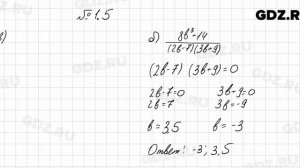 № 1.5
GDZ.RU
б) 8b³+14
(2b-7)(3b+9)
(2b-7) (3b+9)=0
2b-7=0 3b+9=0
2b=7 3b=-9
b=3,5 b=-3
Ответ: -3; 3,5
GDZ.RU